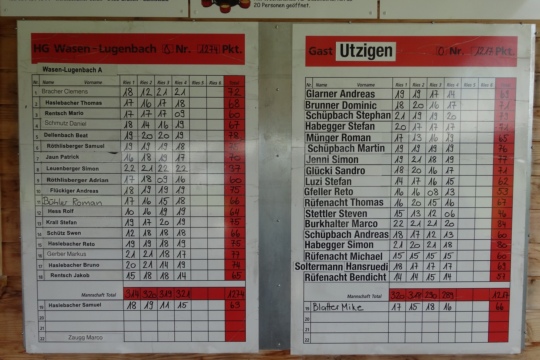 20 Personen geöffnet.
HG Wasen-Lugenbach Nr. 1274 Pkt.
Wasen-Lugenbach A
Name Vorname Ries 1 Ries 2 Ries 3 Ries 4 Ries 5 Ries 6
1 Bracher Clemens 18 12 21 21 72
2 Haslebacher Thomas 17 16 17 18 68
3 Rentsch Marin 17 17 17 09 60
4 Schmutz Daniel 18 14 16 19 67
5 Dellenbach Beat 19 20 20 19 78
6 Röthlisberger Samuel 19 19 19
7 Jaun Patrick 16 18 19 17 70
8 Leuenberger Simon 22 21 22 22
9 Röthlisberger Adrian 17 18 09 16 60
10 Flückiger Andreas 18 19 19 19 75
11 Bühler Roman 17 16 15 18 66
12 Hess Rolf 10 16 19 19 64
13 Krall Stefan 19 17 20 19 75
14 Schütz Swen 12 18 18 18 66
15 Haslebacher Reto 19 19 18 19 75
16 Gerber Markus 21 21 18 17 77
17 Haslebacher Bruno 20 21 14 19 74
18 Rentsch Jakob 15 18 18 14 65
Mannschaft Total 314 320 319 321 1274
19 Haslebacher Samuel 18 19 11 15 63
22 Zaugg Marco
Gast Utzigen Nr. 1217 Pkt.
Name Vorname Ries 1 Ries 2 Ries 3 Ries 4 Ries 5 Ries 6
Glarner Andreas 19 19 17 14 69
Brunner Dominic 18 20 16 17 71
Schüpbach Stephan 21 19 19 20
Habegger Stefan 20 17 17 17
Münger Roman 17 13 16 19 65
Schüpbach Martin 19 19 19 19 76
Jenni Simon 19 21 18 19 77
Glücki Sandro 18 20 16 17 71
Luzi Stefan 14 17 16 15 62
Gfeller Reto 16 16 08 13
Rüfenacht Thomas 16 20 15 16 67
Stettler Steven 15 13 12 06
Burkhalter Marco 22 21 20 21 84
Schüpbach Andreas 18 17 12 13 60
Habegger Simon 21 20 21 18 80
Rüfenacht Michael 15 15 15 15 60
Soltermann Hansruedi 18 17 17 17 69
Rüfenacht Bendicht 14 14 15 14
Mannschaft Total 320 319 290 289 1217
19 Blatter Mike 17 15 18 16 66
20
21
22